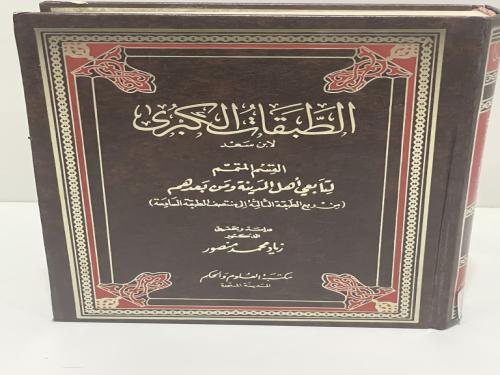 الطبقات الكبرى
لابن سعد
القسم المتمم
لتابعي أهل المدينة ومن بعدهم
(من ربع الطبقة الثالثة إلى منتصف الطبقة السادسة)
دراسة وتحقيق
الدكتور
زياد محمد منصور
مكتبة العلوم والحكم
المدينة المنورة